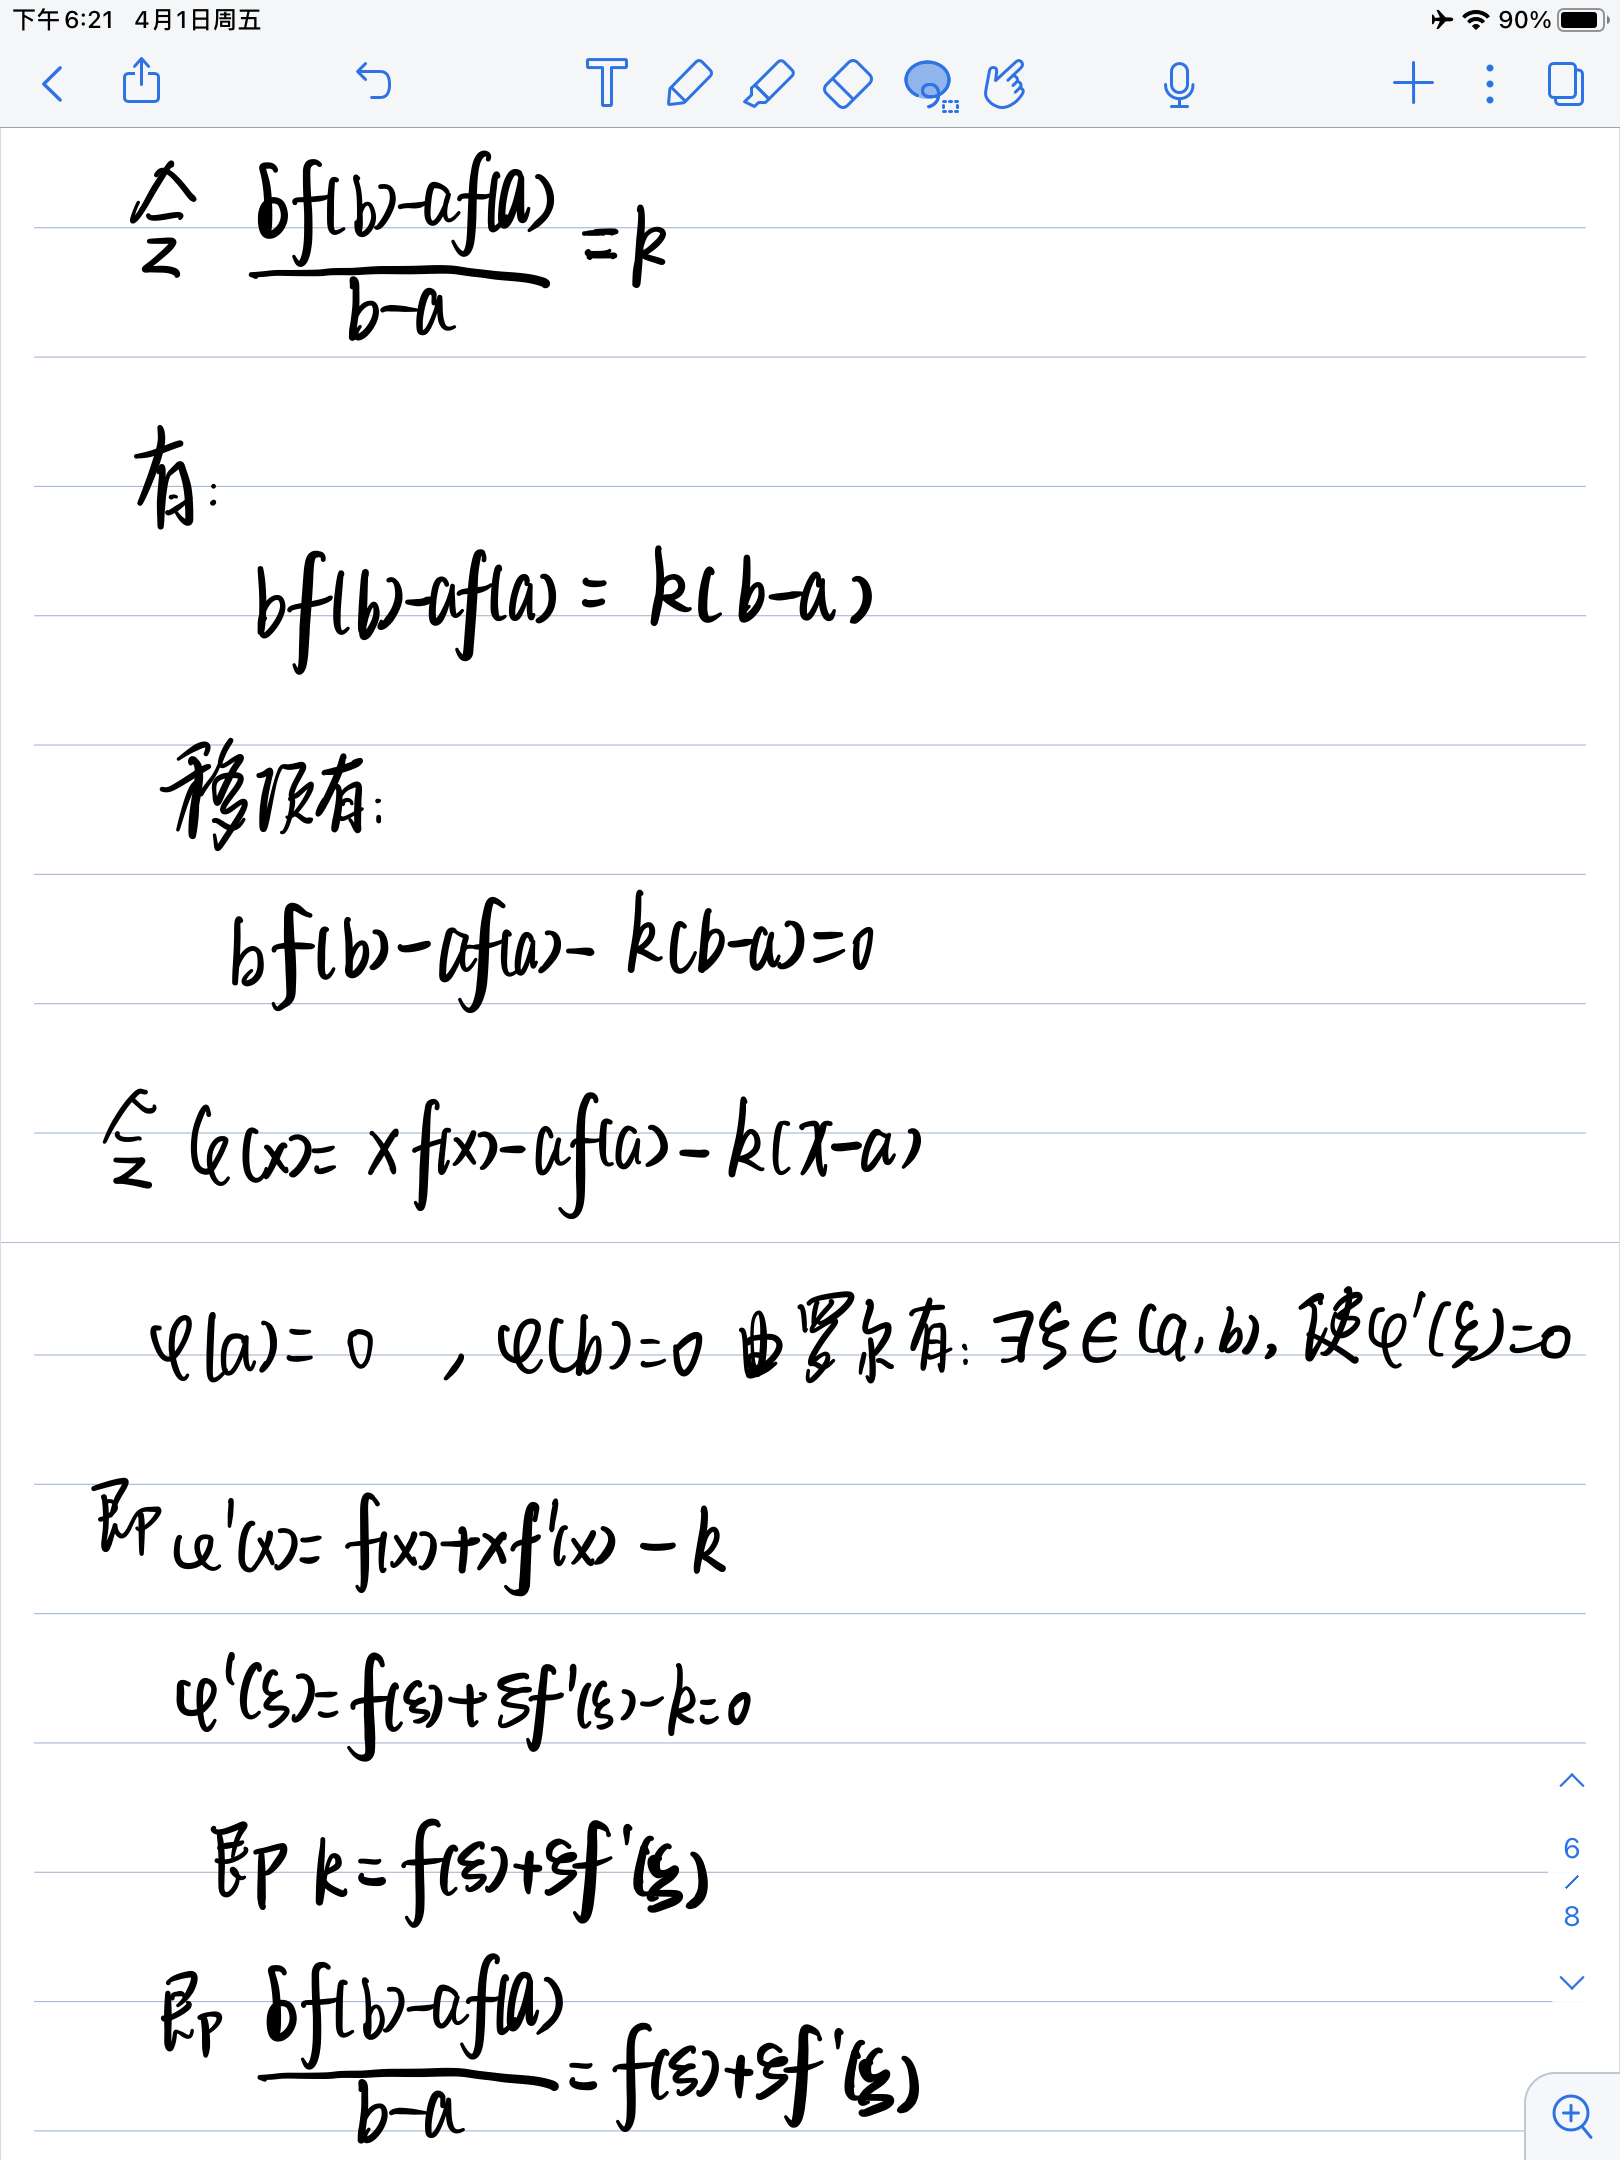 下午6:21 4月1日周五 90%
T
令 bf(b)-af(a) / b-a =k
有:
bf(b)-af(a) = k(b-a)
移项有:
bf(b)-af(a)-k(b-a)=0
令 φ(x)= xf(x)-af(a)-k(x-a)
φ(a)=0 , φ(b)=0 由罗尔有: ∃ξ∈(a,b), 使φ'(ξ)=0
即 φ'(x)= f(x)+xf'(x)-k
φ'(ξ)=f(ξ)+ξf'(ξ)-k=0
即 k=f(ξ)+ξf'(ξ)
即 bf(b)-af(a) / b-a =f(ξ)+ξf'(ξ)
6/8